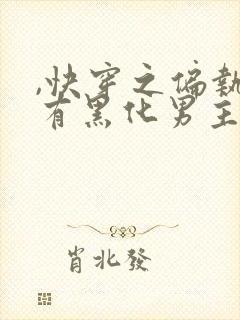 ,快穿之偏執
有黑化男主
肖北發